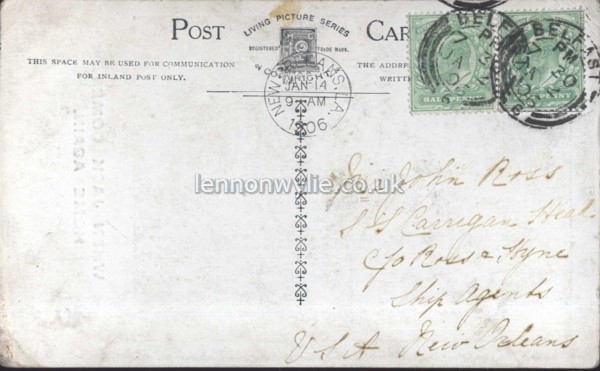 POST CAR
LIVING PICTURE SERIES
REGISTERED TRADE MARK.
THIS SPACE MAY BE USED FOR COMMUNICATION
FOR INLAND POST ONLY.
THE ADDRE
WRITT
NEW ORLEANS, LA.
JAN 14
9 - AM
1906
BELFAST
HALFPENNY
BELFAST
PM
HALFPENNY
lennonwylie.co.uk
John Ross
S S Carrigan Head
c/o Ross & Hyne
Ship Agents
U S A New Orleans